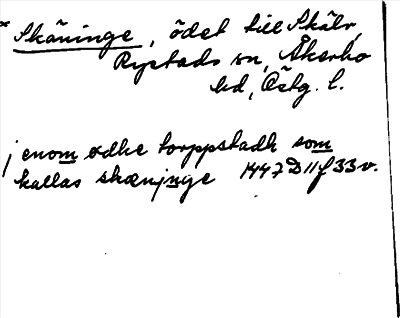 * Skäninge, ödet till Skälv,
Rystads sn, Åkerbo
hd, Östg. l.
j enom ødhe torppstadh som
kallas skæninge 1447 D 11 f 33 v.